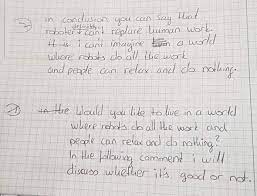 in conclusion you can say that
robots definitely can't replace human work.
I can't imagine a world
where robots do all the work
and people can relax and do nothing.
Would you like to live in a world
where robots do all the work and
people can relax and do nothing?
In the following comment i will
discuss whether it's good or not.